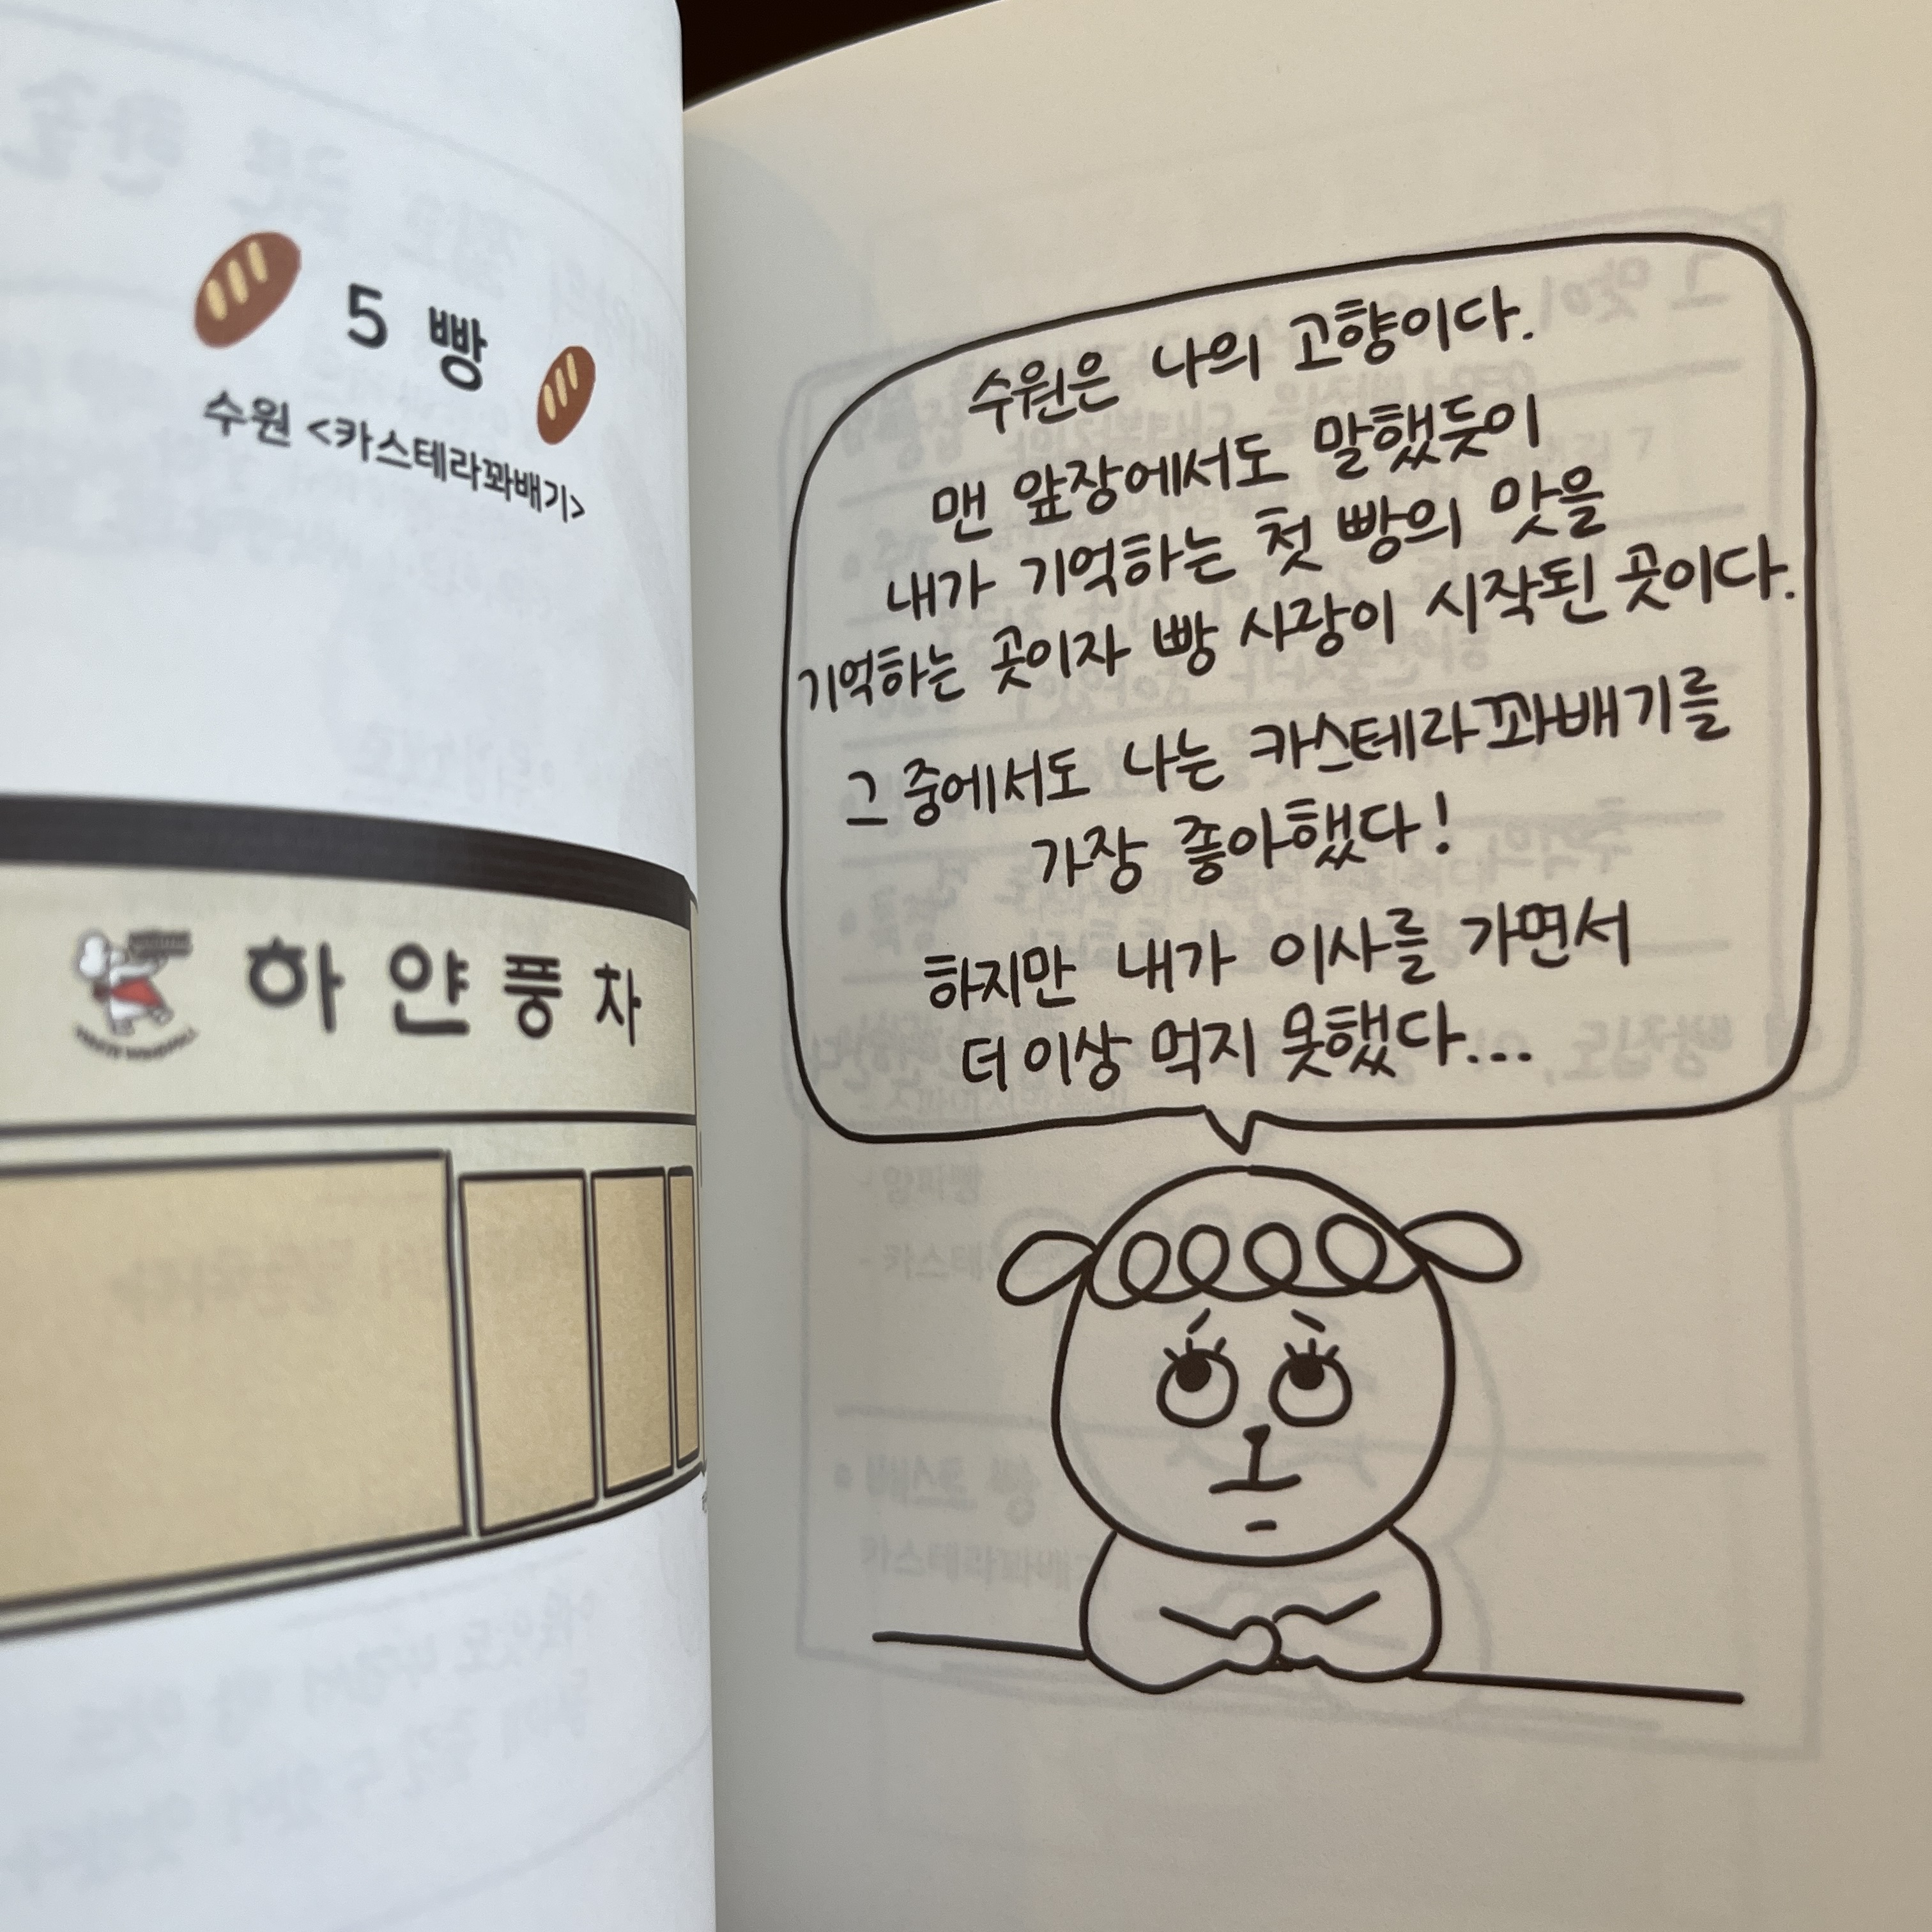 5 빵
수원 <카스테라꽈배기>
하얀풍차
수원은 나의 고향이다.
맨 앞장에서도 말했듯이
내가 기억하는 첫 빵의 맛을
기억하는 곳이자 빵 사랑이 시작된 곳이다.
그 중에서도 나는 카스테라꽈배기를
가장 좋아했다!
하지만 내가 이사를 가면서
더 이상 먹지 못했다...